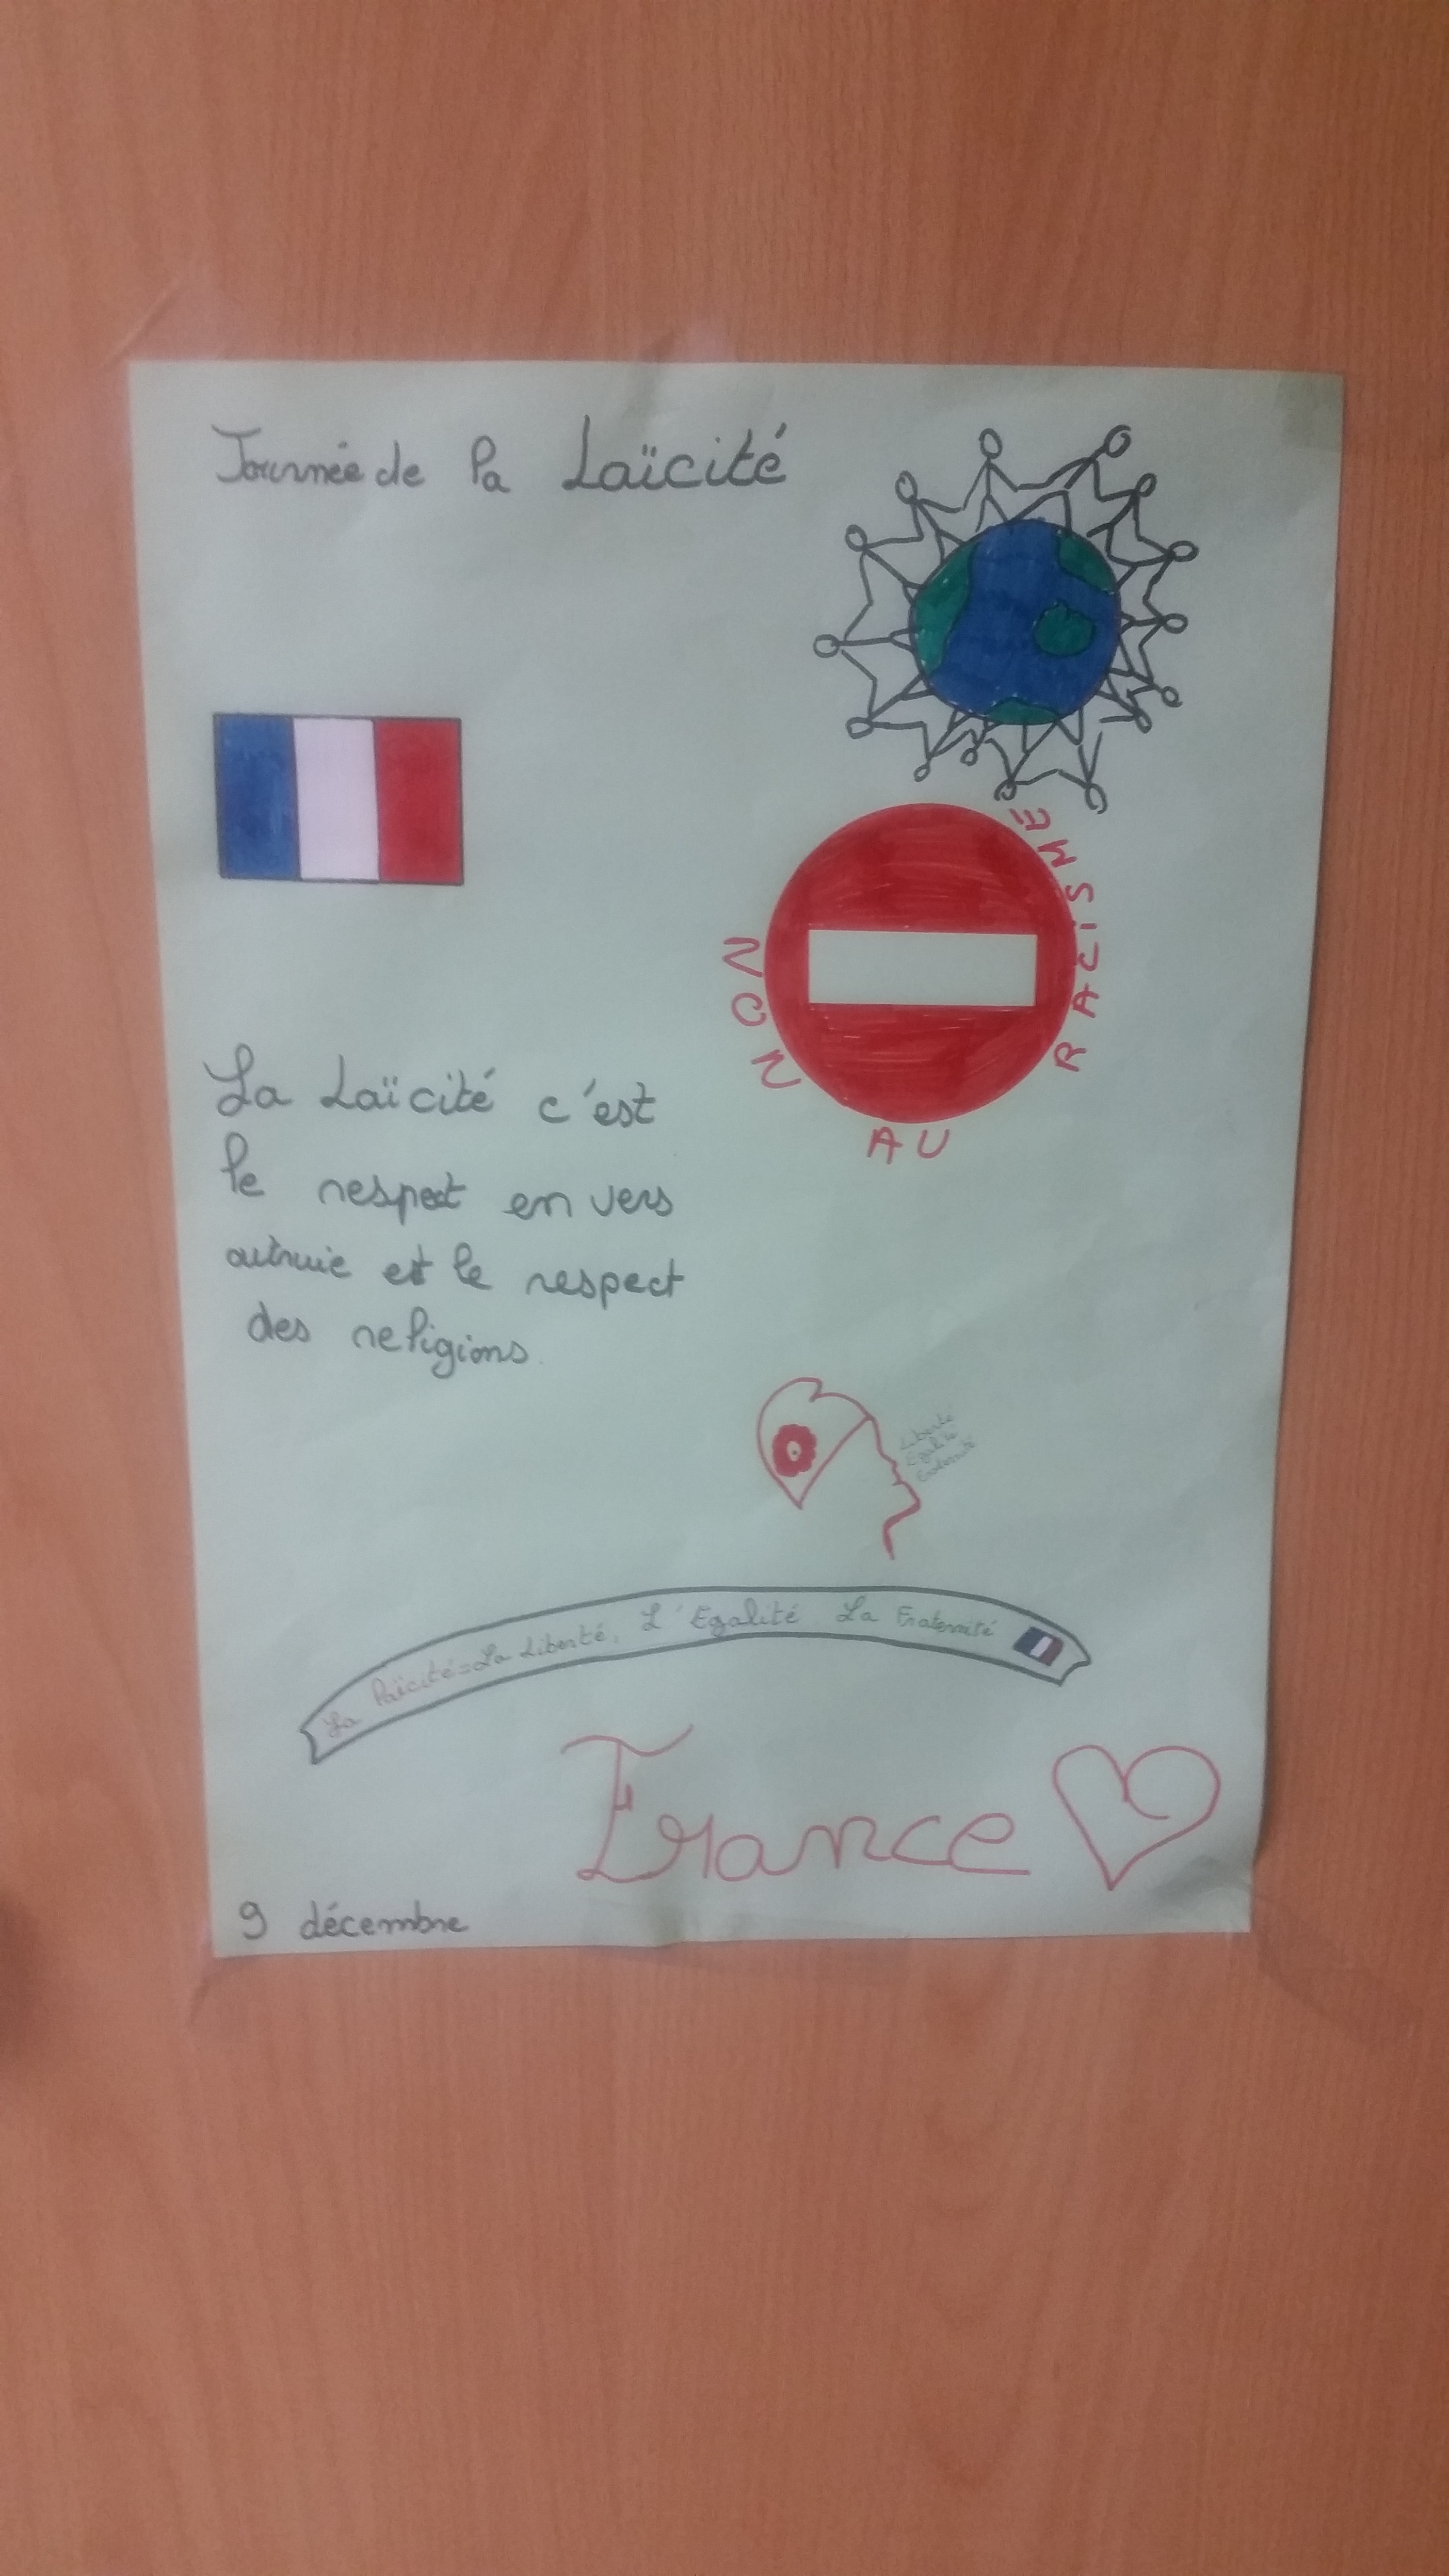 Journée de la Laïcité
NON AU RACISME
La Laïcité c'est
le respect en vers
autruie et le respect
des religions.
Liberté
Egalité
Fraternité
La laïcité=La Liberté, L'Egalité La Fraternité
France
9 décembre